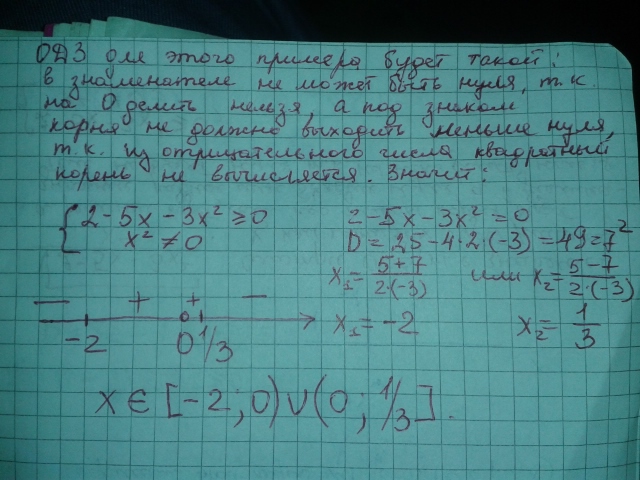 ОДЗ для этого примера будет такой:
в знаменателе не может быть нуля, т.к.
на 0 делить нельзя, а под знаком
корня не должно выходить меньше нуля,
т.к. из отрицательного числа квадратный
корень не вычисляется. Значит:
{2-5x-3x² ≥ 0
x² ≠ 0
2-5x-3x² = 0
D = 25-4·2·(-3) = 49 = 7²
x₁ = (5+7)/(2·(-3)) или x₂ = (5-7)/(2·(-3))
x₁ = -2 x₂ = 1/3
— + + —
-2 0 1/3
x ∈ [-2; 0) ∪ (0; 1/3].